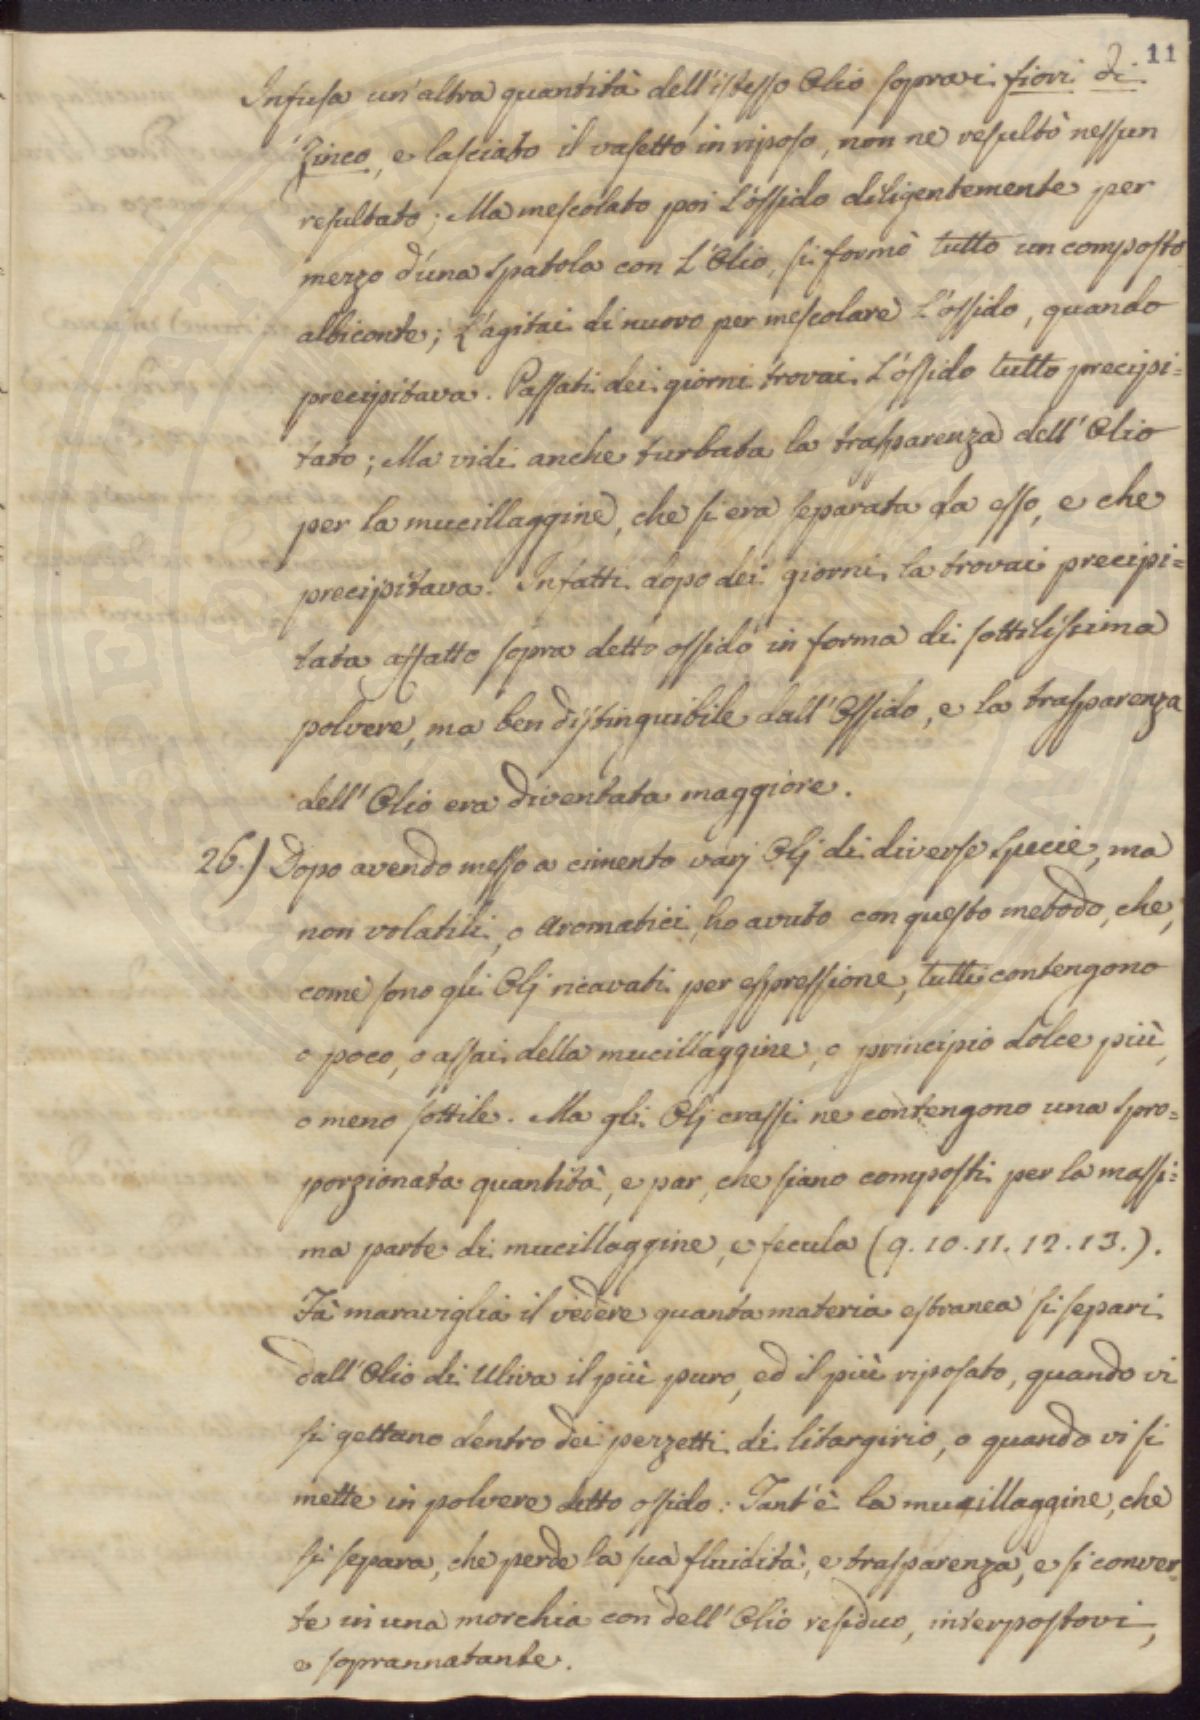 11
Infusa un'altra quantità dell'istesso Olio sopra i fiori di
Zinco, e lasciato il vasetto in riposo, non ne resultò nessun
resultato; Ma mescolato poi L'ossido diligentemente per
mezzo d'una spatola con L'Olio, si formò tutto un composto
albicante; L'agitai di nuovo per mescolare L'ossido, quando
precipitava. Passati dei giorni trovai L'ossido tutto precipi=
tato; Ma vidi anche turbata la trasparenza dell'Olio
per la mucillaggine, che si era separata da esso, e che
precipitava. Infatti dopo dei giorni la trovai precipi=
tata affatto sopra detto ossido in forma di sottilissima
polvere, ma ben distinguibile dall'Ossido, e la trasparenza
dell'Olio era diventata maggiore.
26.) Dopo avendo messo a cimento varj Olj di diverse specie, ma
non volatili, o Aromatici, ho avuto con questo metodo, che,
come sono gli Olj ricavati per espressione, tutti contengono
o poco, o assai della mucillaggine, o principio dolce più,
o meno sottile. Ma gli Olj crassi ne contengono una spro=
porzionata quantità, e par, che siano composti per la massi=
ma parte di mucillaggine, e fecula (9. 10. 11. 12. 13.).
Fà maraviglia il vedere quanta materia estranea si separi
dall'Olio di Uliva il più puro, ed il più riposato, quando vi
si gettano dentro dei pezzetti di litargirio, o quando vi si
mette in polvere detto ossido: Tant'è la mucillaggine, che
si separa, che perde la sua fluidità, e trasparenza, e si conver=
te in una morchia con dell'Olio residuo, interpostovi,
e soprannatante.